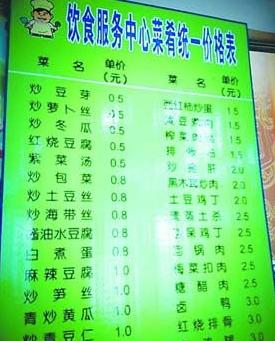 饮食服务中心菜肴统一价格表
菜 名 单价(元) 菜 名 单价(元)
炒豆芽 0.5 西红柿炒蛋 1.5
炒萝卜丝 0.5 1.5
炒冬瓜 0.5 榨菜 1.5
红烧豆腐 0.5 排骨 1.5
紫菜汤 0.5 炒 2.0
炒包菜 0.8 黑木耳炒肉 2.0
炒土豆丝 0.8 土豆鸡丁 2.0
炒海带丝 0.8 2.0
酱油水豆腐 0.8 保鸡丁 2.0
白煮蛋 0.8 回锅肉 2.0
麻辣豆腐 1.0 梅菜扣肉 2.0
炒笋丝 1.0 糖醋肉 2.0
青炒黄瓜 1.0 卤鸭 3.0
炒青豆仁 1.0 红烧排骨 3.0